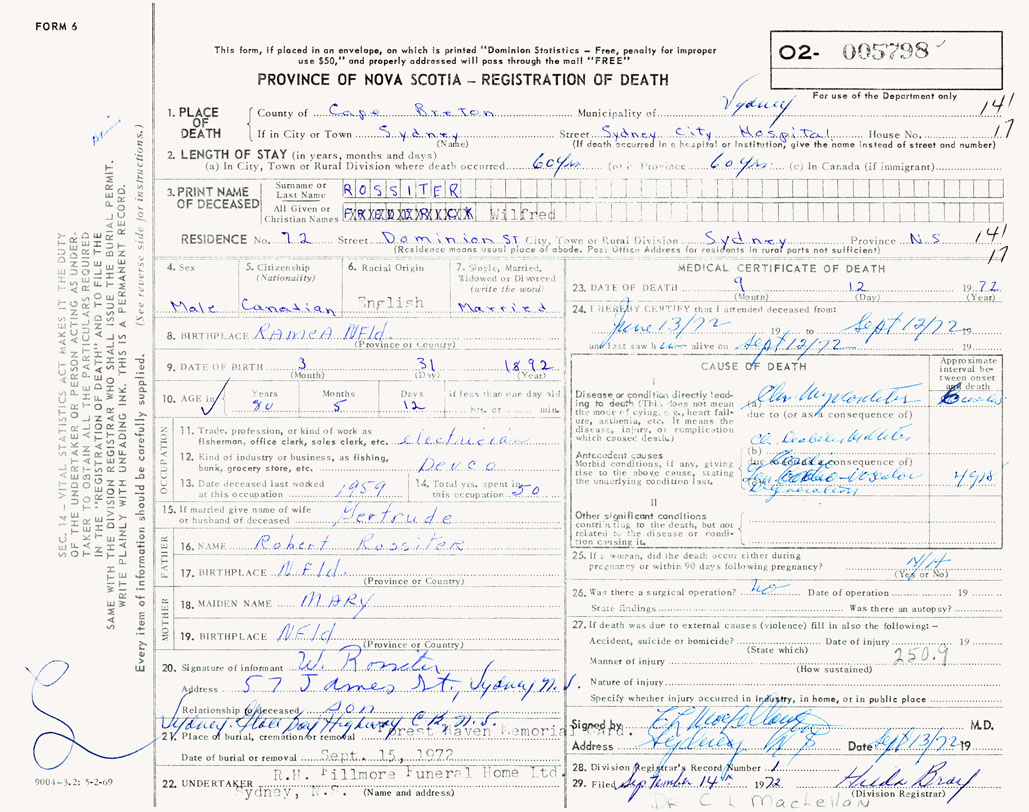 FORM 6
This form, if placed in an envelope, on which is printed "Dominion Statistics – Free, penalty for improper
use $50," and properly addressed will pass through the mail "FREE"
O2- 005798
PROVINCE OF NOVA SCOTIA – REGISTRATION OF DEATH
For use of the Department only
1. PLACE OF DEATH
County of Cape Breton Municipality of Sydney 141
If in City or Town Sydney Street Sydney City Hospital House No. 17
(Name) (If death occurred in a hospital or institution, give the name instead of street and number)
2. LENGTH OF STAY (in years, months and days)
(a) In City, Town or Rural Division where death occurred 60 yrs (b) Province 60 yrs. (c) In Canada (if immigrant)
3. PRINT NAME OF DECEASED
Surname or Last Name ROSSITER
All Given or Christian Names FREDRICK Wilfred
RESIDENCE No. 72 Street Dominion St City, Town or Rural Division Sydney Province N.S 141
(Residence means usual place of abode. Post Office Address for residents in rural parts not sufficient) 17
4. Sex
Male
5. Citizenship (Nationality)
Canadian
6. Racial Origin
English
7. Single, Married, Widowed or Divorced (write the word)
Married
8. BIRTHPLACE RAMEA NFld.
(Province or Country)
9. DATE OF BIRTH 3 31 1892
(Month) (Day) (Year)
10. AGE in Years Months Days If less than one day old
80 5 12 hrs. or min.
OCCUPATION
11. Trade, profession, or kind of work as
fisherman, office clerk, sales clerk, etc. electrician
12. Kind of industry or business, as fishing,
bank, grocery store, etc. Devco
13. Date deceased last worked
at this occupation 1959
14. Total yrs. spent in
this occupation 50
15. If married give name of wife
or husband of deceased Gertrude
FATHER
16. NAME Robert Rossiter
17. BIRTHPLACE NFld.
(Province or Country)
MOTHER
18. MAIDEN NAME MARY
19. BIRTHPLACE NFld
(Province or Country)
20. Signature of informant W. Rossiter
Address 57 James St., Sydney N.S.
Relationship to deceased son
Sydney Glace Bay Highway C.B., N.S.
21. Place of burial, cremation or removal Forest Haven Memorial Gard.
Date of burial or removal Sept. 15, 1972
22. UNDERTAKER R.H. Fillmore Funeral Home Ltd.
Sydney, N.S. (Name and address)
MEDICAL CERTIFICATE OF DEATH
23. DATE OF DEATH 9 12 1972
(Month) (Day) (Year)
24. I HEREBY CERTIFY that I attended deceased from:
June 13/72 19 to Sept 12/72 19
and last saw him alive on Sept 12/72
CAUSE OF DEATH
Approximate interval between onset and death
I
Disease or condition directly leading to death (This does not mean the mode of dying, e.g., heart failure, asthenia, etc. It means the disease, injury, or complication which caused death.)
(a)
due to (or as a consequence of)
Antecedent causes
Morbid conditions, if any, giving rise to the above cause, stating the underlying condition last.
(b)
due to (or as a consequence of)
Degeneration
II
Other significant conditions
contributing to the death, but not related to the disease or condition causing it.
25. If a woman, did the death occur either during
pregnancy or within 90 days following pregnancy? N/A
(Yes or No)
26. Was there a surgical operation? No Date of operation 19
State findings Was there an autopsy?
27. If death was due to external causes (violence) fill in also the following: –
Accident, suicide or homicide? Date of injury 19
(State which) 250.9
Manner of injury
(How sustained)
Nature of injury
Specify whether injury occurred in industry, in home, or in public place
Signed by M.D.
Address Sydney NS Date Sept 13/72 19
28. Division Registrar's Record Number 1
29. Filed September 14th 1972 Hilda Bray
(Division Registrar)
DR. C L MacLellan
SEC. 14 – VITAL STATISTICS ACT MAKES IT THE DUTY
OF THE UNDERTAKER OR PERSON ACTING AS UNDER-
TAKER TO OBTAIN ALL THE PARTICULARS REQUIRED
IN THE "REGISTRATION OF DEATH" AND TO FILE THE
SAME WITH THE DIVISION REGISTRAR WHO SHALL ISSUE THE BURIAL PERMIT.
WRITE PLAINLY WITH UNFADING INK. THIS IS A PERMANENT RECORD.
Every item of information should be carefully supplied. (See reverse side for instructions.)
9004-3.2: 5-2-69